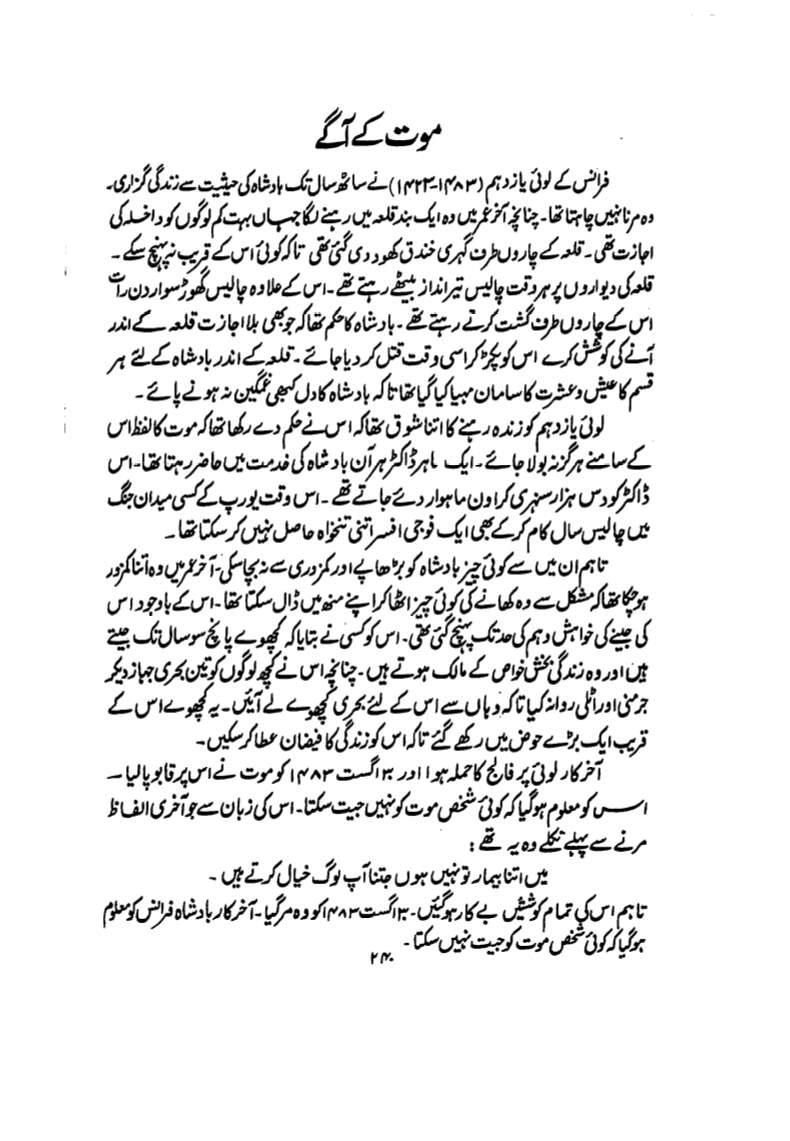 موت کے آگے
فرانس کے لوئی یازدہم (۱۴۸۳-۱۴۲۳) نے ساٹھ سال تک بادشاہ کی حیثیت سے زندگی گزاری۔
وہ مرنا نہیں چاہتا تھا۔ چنانچہ آخر عمر میں وہ ایک بند قلعہ میں رہنے لگا جہاں بہت کم لوگوں کو داخلہ کی
اجازت تھی۔ قلعہ کے چاروں طرف گہری خندق کھود دی گئی تھی تاکہ کوئی اس کے قریب نہ پہنچ سکے۔
قلعہ کی دیواروں پر ہر وقت چالیس تیر انداز بیٹھے رہتے تھے۔ اس کے علاوہ چالیس گھوڑ سوار دن رات
اس کے چاروں طرف گشت کرتے رہتے تھے۔ بادشاہ کا حکم تھا کہ جو بھی بلا اجازت قلعہ کے اندر
آنے کی کوشش کرے اس کو پکڑ کر اسی وقت قتل کر دیا جائے۔ قلعہ کے اندر بادشاہ کے لئے ہر
قسم کا عیش و عشرت کا سامان مہیا کیا گیا تھا تاکہ بادشاہ کا دل کبھی غمگین نہ ہونے پائے۔
لوئی یازدہم کو زندہ رہنے کا اتنا شوق تھا کہ اس نے حکم دے رکھا تھا کہ موت کا لفظ اس
کے سامنے ہرگز نہ بولا جائے۔ ایک ماہر ڈاکٹر ہر آن بادشاہ کی خدمت میں حاضر رہتا تھا۔ اس
ڈاکٹر کو دس ہزار سنہری کراون ماہوار دئے جاتے تھے۔ اس وقت یورپ کے کسی میدان جنگ
میں چالیس سال کام کر کے بھی ایک فوجی افسر اتنی تنخواہ حاصل نہیں کر سکتا تھا۔
تاہم ان میں سے کوئی چیز بادشاہ کو بڑھاپے اور کمزوری سے نہ بچا سکی۔ آخر عمر میں وہ اتنا کمزور
ہو چکا تھا کہ مشکل سے وہ کھانے کی کوئی چیز اٹھا کر اپنے منھ میں ڈال سکتا تھا۔ اس کے باوجود اس
کی جینے کی خواہش وہم کی حد تک پہنچ گئی تھی۔ اس کو کسی نے بتایا کہ کچھوے پانچ سو سال تک جیتے
ہیں اور وہ زندگی بخش خواص کے مالک ہوتے ہیں۔ چنانچہ اس نے کچھ لوگوں کو تین بحری جہاز دیکر
جرمنی اور اٹلی روانہ کیا تاکہ وہاں سے اس کے لئے بحری کچھوے لے آئیں۔ یہ کچھوے اس کے
قریب ایک بڑے حوض میں رکھے گئے تاکہ اس کو زندگی کا فیضان عطا کر سکیں۔
آخر کار لوئی پر فالج کا حملہ ہوا اور ۳۰ اگست ۱۴۸۳ کو موت نے اس پر قابو پالیا۔
اس کو معلوم ہو گیا کہ کوئی شخص موت کو نہیں جیت سکتا۔ اس کی زبان سے جو آخری الفاظ
مرنے سے پہلے نکلے وہ یہ تھے :
میں اتنا بیمار تو نہیں ہوں جتنا آپ لوگ خیال کرتے ہیں۔
تاہم اس کی تمام کوششیں بے کار ہو گئیں۔ ۳۰ اگست ۱۴۸۳ کو وہ مر گیا۔ آخر کار بادشاہ فرانس کو معلوم
ہو گیا کہ کوئی شخص موت کو جیت نہیں سکتا۔
۲۴۰